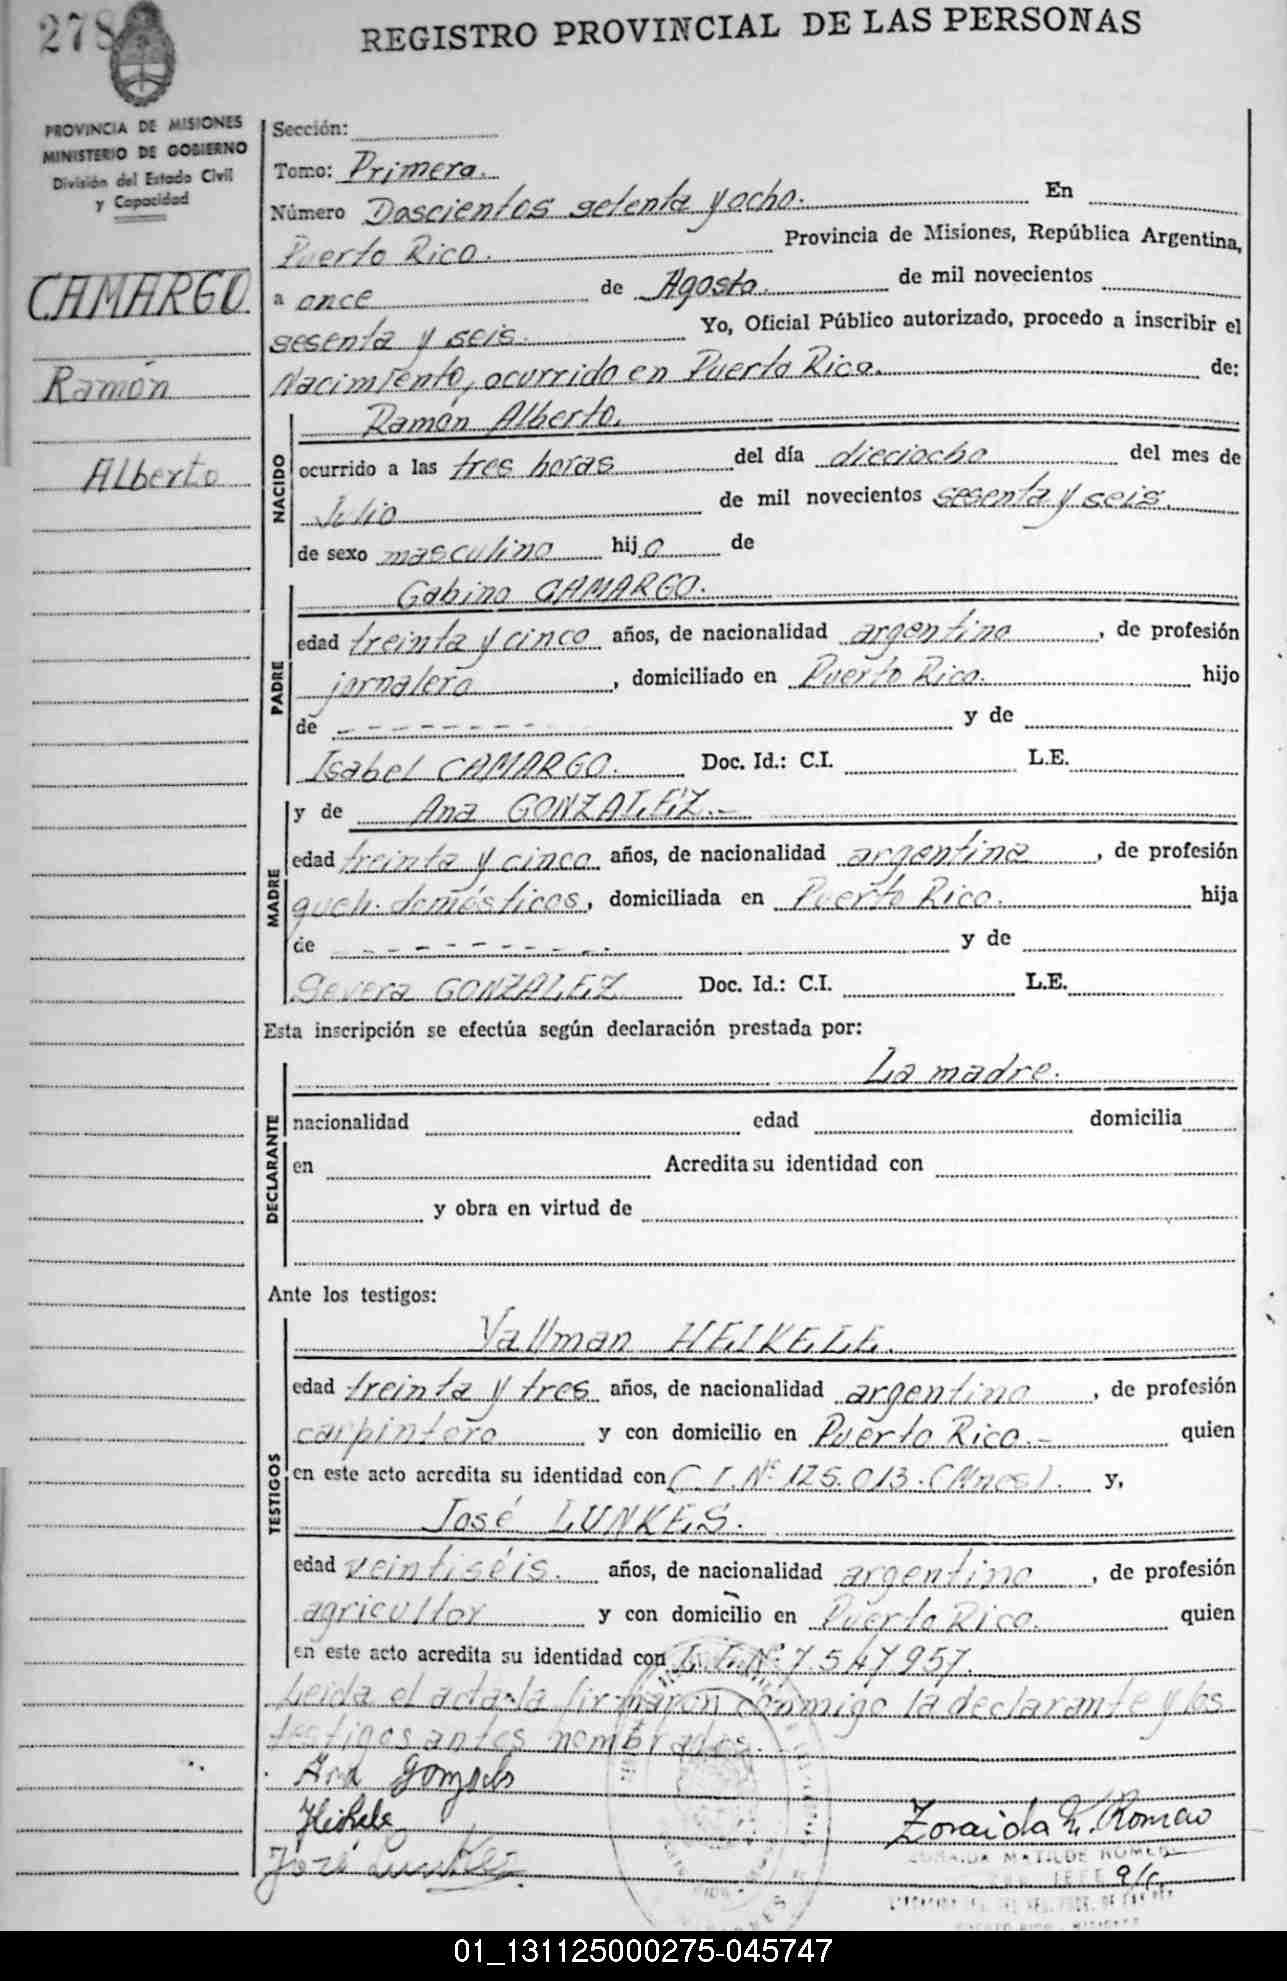 278
REGISTRO PROVINCIAL DE LAS PERSONAS
PROVINCIA DE MISIONES
MINISTERIO DE GOBIERNO
División del Estado Civil
y Capacidad
CAMARGO
Ramón
Alberto
Sección:
Tomo: Primera.
Número Doscientos setenta y ocho. En
Puerto Rico. Provincia de Misiones, República Argentina,
a once de Agosto. de mil novecientos
sesenta y seis. Yo, Oficial Público autorizado, procedo a inscribir el
Nacimiento, ocurrido en Puerto Rico. de:
NACIDO
Ramón Alberto.
ocurrido a las tres horas del día dieciocho del mes de
Julio de mil novecientos sesenta y seis.
de sexo masculino hijo de
PADRE
Gabino CAMARGO.
edad treinta y cinco años, de nacionalidad argentino, de profesión
jornalero, domiciliado en Puerto Rico. hijo
de - - - - - - - - y de
Isabel CAMARGO. Doc. Id.: C.I. L.E.
MADRE
y de Ana GONZALEZ.-
edad treinta y cinco años, de nacionalidad argentina, de profesión
queh. domésticos, domiciliada en Puerto Rico. hija
de - - - - - - - - - . y de
Severa GONZALEZ Doc. Id.: C.I. L.E.
Esta inscripción se efectúa según declaración prestada por:
DECLARANTE
La madre.
nacionalidad edad domicilia
en Acredita su identidad con
y obra en virtud de
Ante los testigos:
TESTIGOS
Vallman HEIKELE.
edad treinta y tres años, de nacionalidad argentino, de profesión
carpintero y con domicilio en Puerto Rico.- quien
en este acto acredita su identidad con C.I. Nº 125.013.(Mnes). y,
José LUNKES.
edad veintiséis. años, de nacionalidad argentino, de profesión
agricultor y con domicilio en Puerto Rico. quien
en este acto acredita su identidad con Nº 7.547.957.
Leida el acta la firmaron conmigo la declarante y los
testigos antes nombrados.
Ana Gonzales
Heikele
José Lunkes
Zoraida M. Romero
ZORAIDA MATILDE ROMERO
JEFE a/c.
PUERTO RICO - MISIONES
01_131125000275-045747